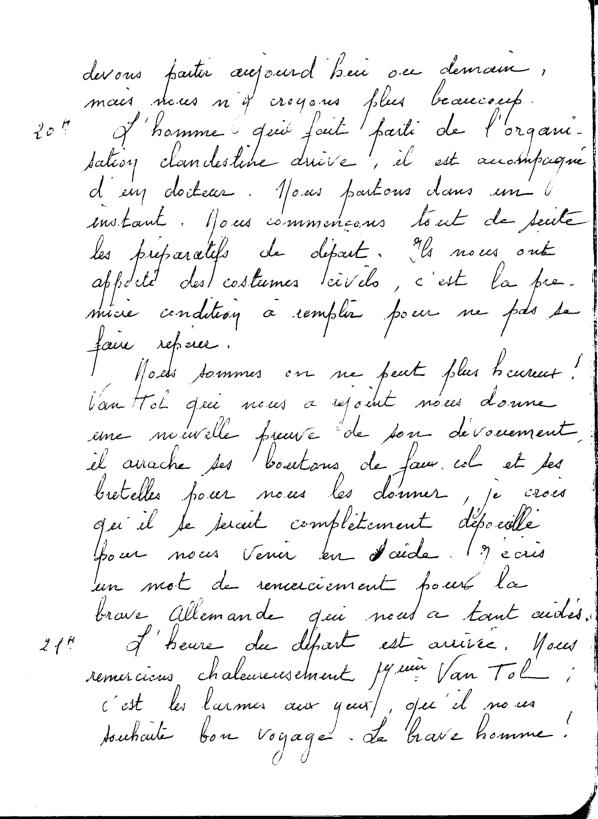 devons partir aujourd'hui ou demain,
mais nous n'y croyons plus beaucoup.
20H L'homme qui fait parti de l'organi-
sation clandestine arrive, il est accompagné
d'un docteur. Nous partons dans un
instant. Nous commençons tout de suite
les préparatifs de départ. Ils nous ont
apporté des costumes civils, c'est la pre-
mière condition à remplir pour ne pas se
faire repérer.
Nous sommes on ne peut plus heureux!
Van Tol qui nous a rejoint nous donne
une nouvelle preuve de son dévouement,
il arrache ses boutons de faux.col et ses
bretelles pour nous les donner, je crois
qu'il se serait complètement dépouillé
pour nous venir en aide. J'écris
un mot de remerciement pour la
brave Allemande qui nous a tant aidés.
21H L'heure du départ est arrivée. Nous
remercions chaleureusement Van Tol;
c'est les larmes aux yeux, qu'il nous
souhaite bon voyage. Le brave homme!